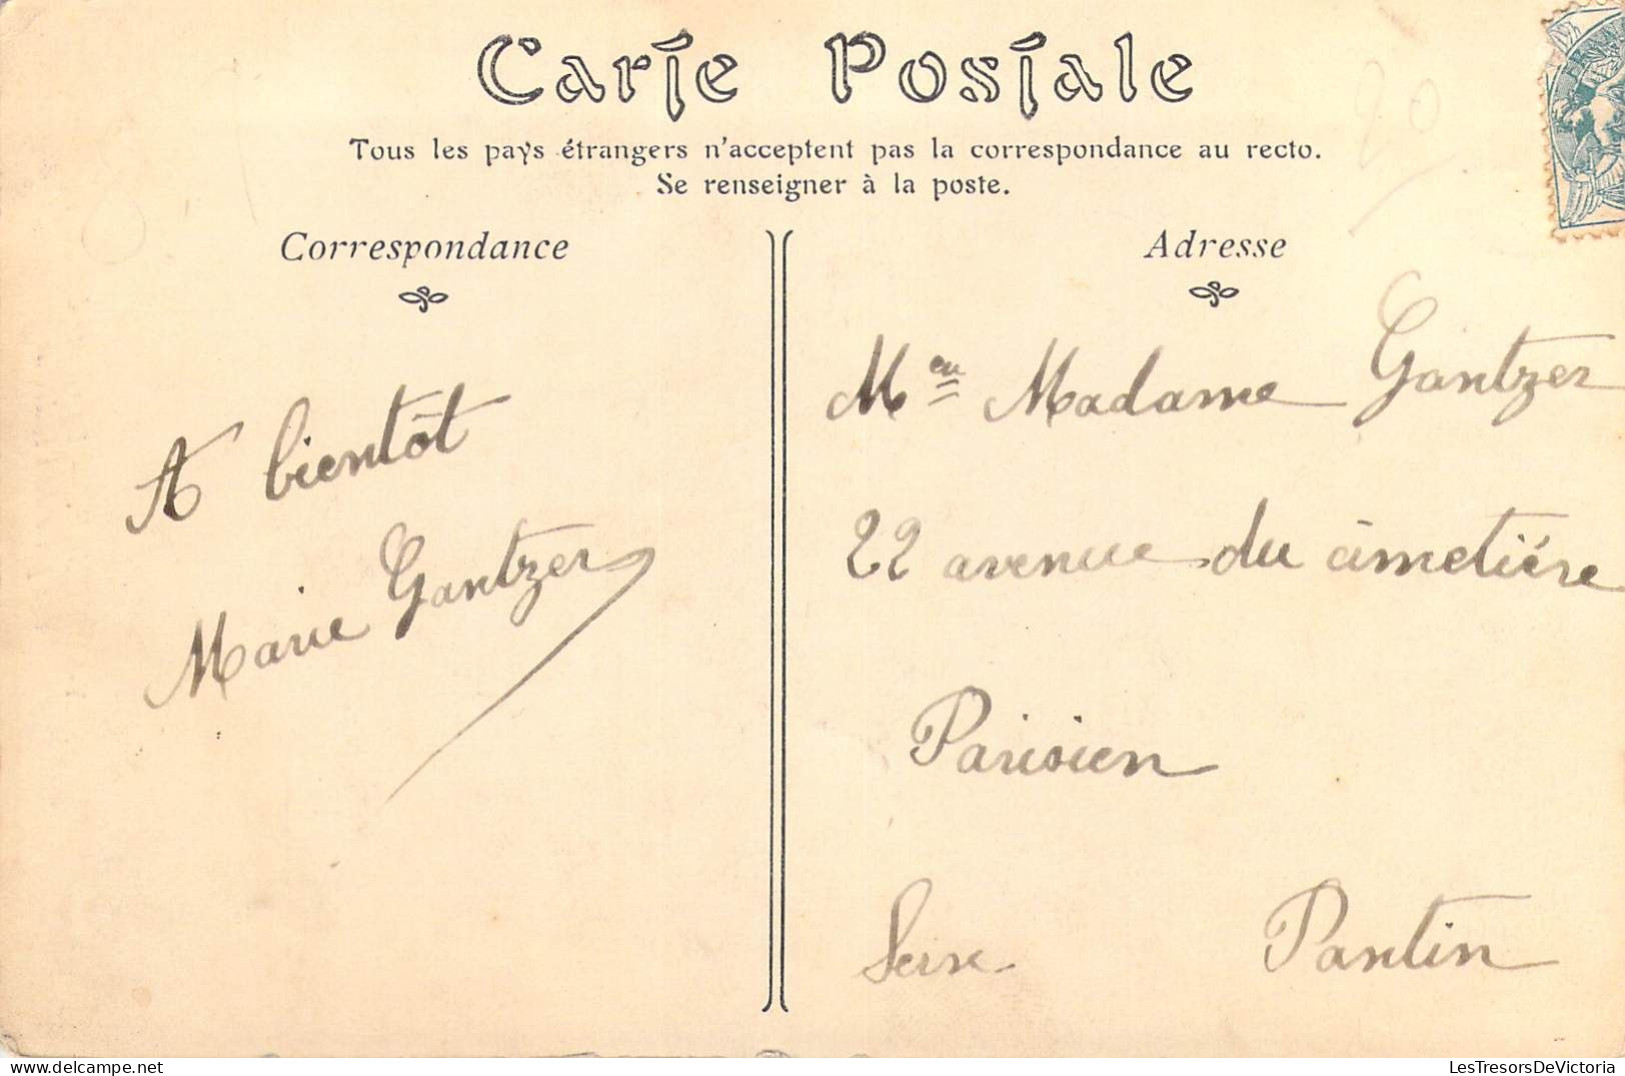 Carte Postale
Tous les pays étrangers n'acceptent pas la correspondance au recto.
Se renseigner à la poste.
Correspondance
Adresse
A bientôt
Marie Gantzer
Madame Gantzer
22 avenue du cimetière
Parisien
Seine Pantin
LesTresorsDeVictoria